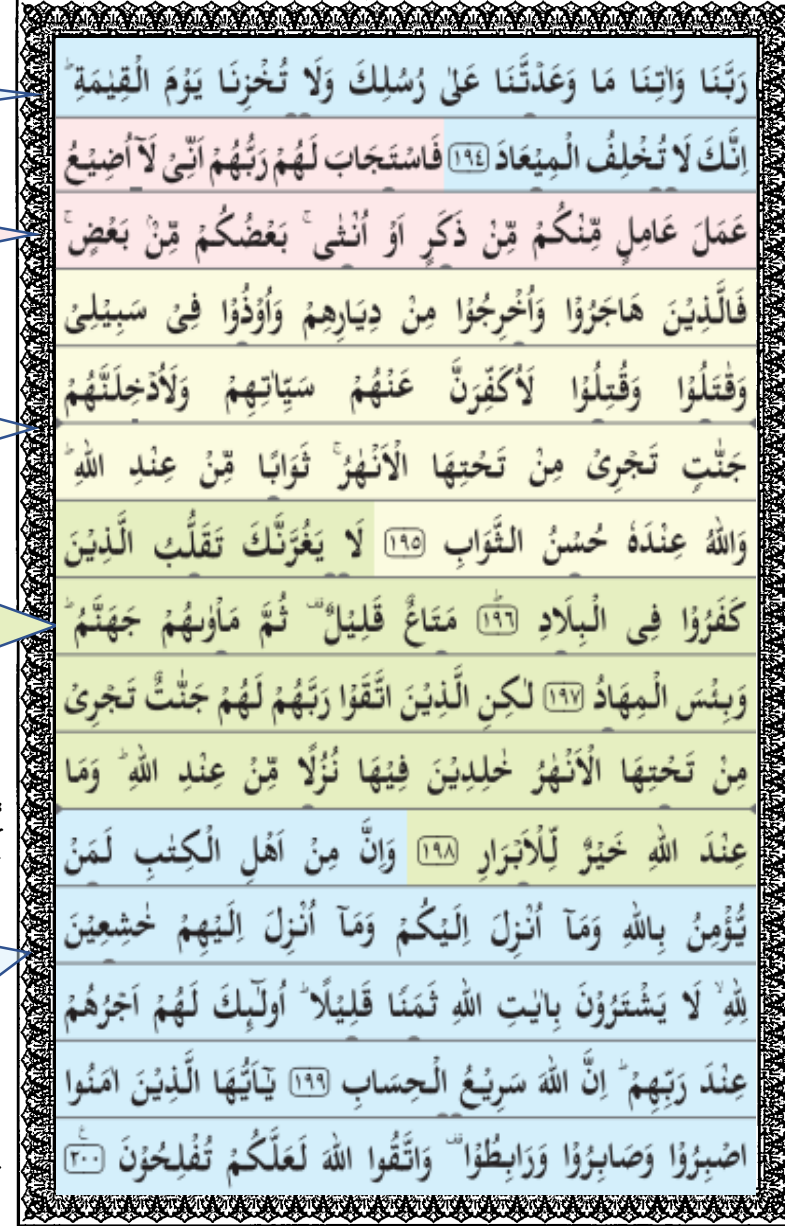 رَبَّنَا وَاٰتِنَا مَا وَعَدْتَّنَا عَلٰى رُسُلِكَ وَلَا تُخْزِنَا يَوْمَ الْقِيٰمَةِ ؕ
اِنَّكَ لَا تُخْلِفُ الْمِيْعَادَ ﴿١٩٤﴾ فَاسْتَجَابَ لَهُمْ رَبُّهُمْ اَنِّىْ لَاۤ اُضِيْعُ
عَمَلَ عَامِلٍ مِّنْكُمْ مِّنْ ذَكَرٍ اَوْ اُنْثٰى ۚ بَعْضُكُمْ مِّنْۢ بَعْضٍ ۚ
فَالَّذِيْنَ هَاجَرُوْا وَاُخْرِجُوْا مِنْ دِيَارِهِمْ وَاُوْذُوْا فِىْ سَبِيْلِىْ
وَقٰتَلُوْا وَقُتِلُوْا لَاُكَفِّرَنَّ عَنْهُمْ سَيِّاٰتِهِمْ وَلَاُدْخِلَنَّهُمْ
جَنّٰتٍ تَجْرِىْ مِنْ تَحْتِهَا الْاَنْهٰرُ ۚ ثَوَابًا مِّنْ عِنْدِ اللّٰهِ ؕ
وَاللّٰهُ عِنْدَهٗ حُسْنُ الثَّوَابِ ﴿١٩٥﴾ لَا يَغُرَّنَّكَ تَقَلُّبُ الَّذِيْنَ
كَفَرُوْا فِى الْبِلَادِ ؕ﴿١٩٦﴾ مَتَاعٌ قَلِيْلٌ ۟ ثُمَّ مَاْوٰىهُمْ جَهَنَّمُ ؕ
وَبِئْسَ الْمِهَادُ ﴿١٩٧﴾ لٰكِنِ الَّذِيْنَ اتَّقَوْا رَبَّهُمْ لَهُمْ جَنّٰتٌ تَجْرِىْ
مِنْ تَحْتِهَا الْاَنْهٰرُ خٰلِدِيْنَ فِيْهَا نُزُلًا مِّنْ عِنْدِ اللّٰهِ ؕ وَمَا
عِنْدَ اللّٰهِ خَيْرٌ لِّلْاَبْرَارِ ﴿١٩٨﴾ وَاِنَّ مِنْ اَهْلِ الْكِتٰبِ لَمَنْ
يُّؤْمِنُ بِاللّٰهِ وَمَاۤ اُنْزِلَ اِلَيْكُمْ وَمَاۤ اُنْزِلَ اِلَيْهِمْ خٰشِعِيْنَ
لِلّٰهِ ۙ لَا يَشْتَرُوْنَ بِاٰيٰتِ اللّٰهِ ثَمَنًا قَلِيْلًا ؕ اُولٰٓئِكَ لَهُمْ اَجْرُهُمْ
عِنْدَ رَبِّهِمْ ؕ اِنَّ اللّٰهَ سَرِيْعُ الْحِسَابِ ﴿١٩٩﴾ يٰۤاَيُّهَا الَّذِيْنَ اٰمَنُوا
اصْبِرُوْا وَصَابِرُوْا وَرَابِطُوْا ۟ وَاتَّقُوا اللّٰهَ لَعَلَّكُمْ تُفْلِحُوْنَ ﴿٢٠٠﴾